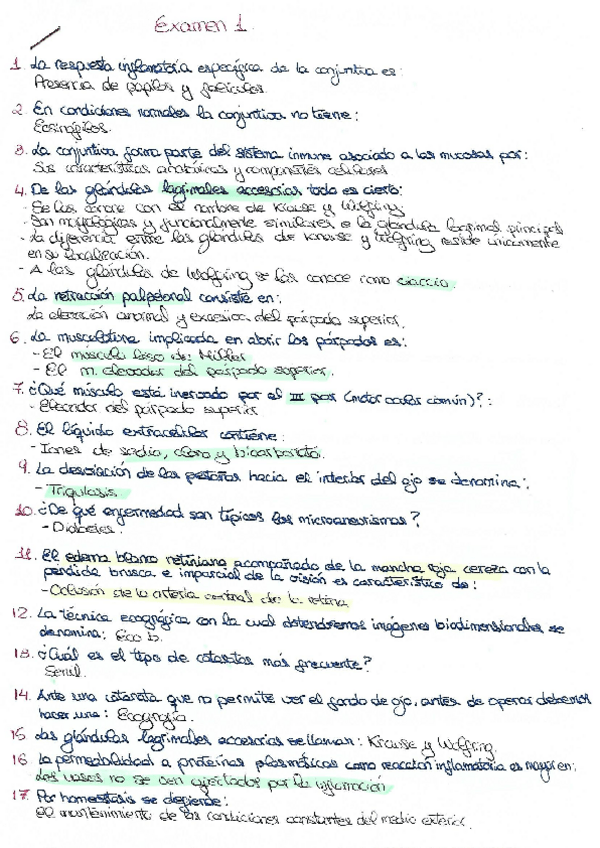 Examen 1.
1. La respuesta inflamatoria específica de la conjuntiva es:
Presencia de papilas y folículos.
2. En condiciones normales la conjuntiva no tiene:
Eosinófilos.
3. La conjuntiva forma parte del sistema inmune asociado a las mucosas por:
Sus características anatómicas y componentes celulares
4. De las glándulas lagrimales accesorias todo es cierto:
- Se las conoce con el nombre de Krause y Wolfring.
- Son morfológicas y funcionalmente similares a la glándula lagrimal principal
- La diferencia entre las glándulas de Krause y Wolfring reside únicamente
en su localización.
- A las glándulas de Wolfring se las conoce como ciaccio.
5. La retracción palpebral consiste en:
La elevación anormal y excesiva del párpado superior.
6. La musculatura implicada en abrir los párpados es:
- El músculo liso de Müller
- El m. elevador del párpado superior.
7. ¿Qué músculo está inervado por el III par (motor ocular común)?:
- Elevador del párpado superior
8. El líquido extracelular contiene:
- Iones de sodio, cloro y bicarbonato.
9. La desviación de las pestañas hacia el interior del ojo se denomina:
- Triquiasis.
10. ¿De qué enfermedad son típicos los microaneurismas?
- Diabetes.
11. El edema blanco retiniano acompañado de la mancha roja cereza con la
pérdida brusca e imparcial de la visión es característico de:
- Oclusión de la arteria central de la retina
12. La técnica ecográfica con la cual obtendremos imágenes biodimensionales se
denomina: Eco b.
13. ¿Cuál es el tipo de catarata más frecuente?
Senil.
14. Ante una catarata que no permite ver el fondo de ojo, antes de operar debemos
hacer una: Ecografía.
15 Las glándulas lagrimales accesorias se llaman: Krause y Wolfring.
16. La permeabilidad a proteínas plasmáticas como reacción inflamatoria es mayor en:
Los vasos no se ven afectados por la inflamación
17. Por homeostasis se defiende:
El mantenimiento de las condiciones constantes del medio exterior.